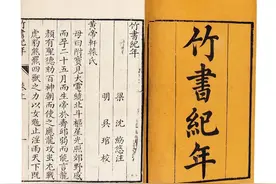 竹書紀年
竹書紀年
梁 沈約
明 吳琯 校
黃帝軒轅氏
母曰附寶見大電繞北斗樞星光照郊野感
而孕二十五月而生帝於壽邱弱而能言龍
顏有聖德劾百神朝而使之應龍攻蚩尤戰
虎豹熊羆四獸之力以女魃止淫雨天下既
竹書紀年